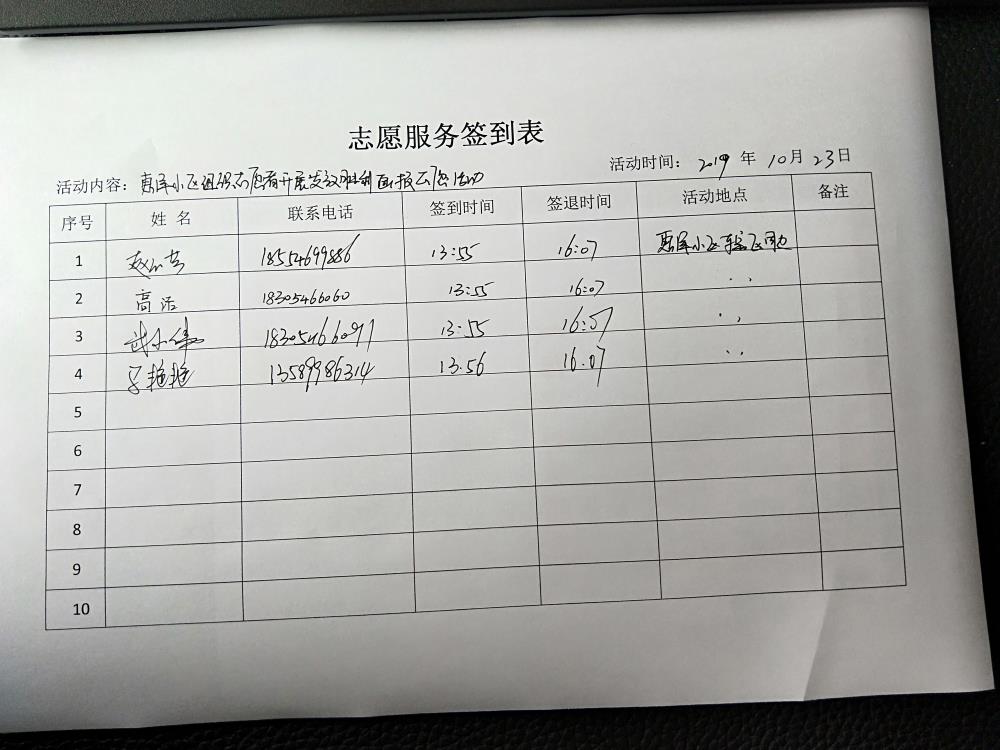 志愿服务签到表
活动时间： 2019 年 10 月 23 日
活动内容： 惠泽小区组织志愿者开展发放胜利 活动
序号 姓 名 联系电话 签到时间 签退时间 活动地点 备注
1 18554699886 13:55 16:07 惠泽小区
2 高洁 18305466060 13:55 16:07 〃
3 武小伟 18305466097 13:55 16:07 〃
4 艳艳 13589986314 13.56 16.07 〃
5
6
7
8
9
10